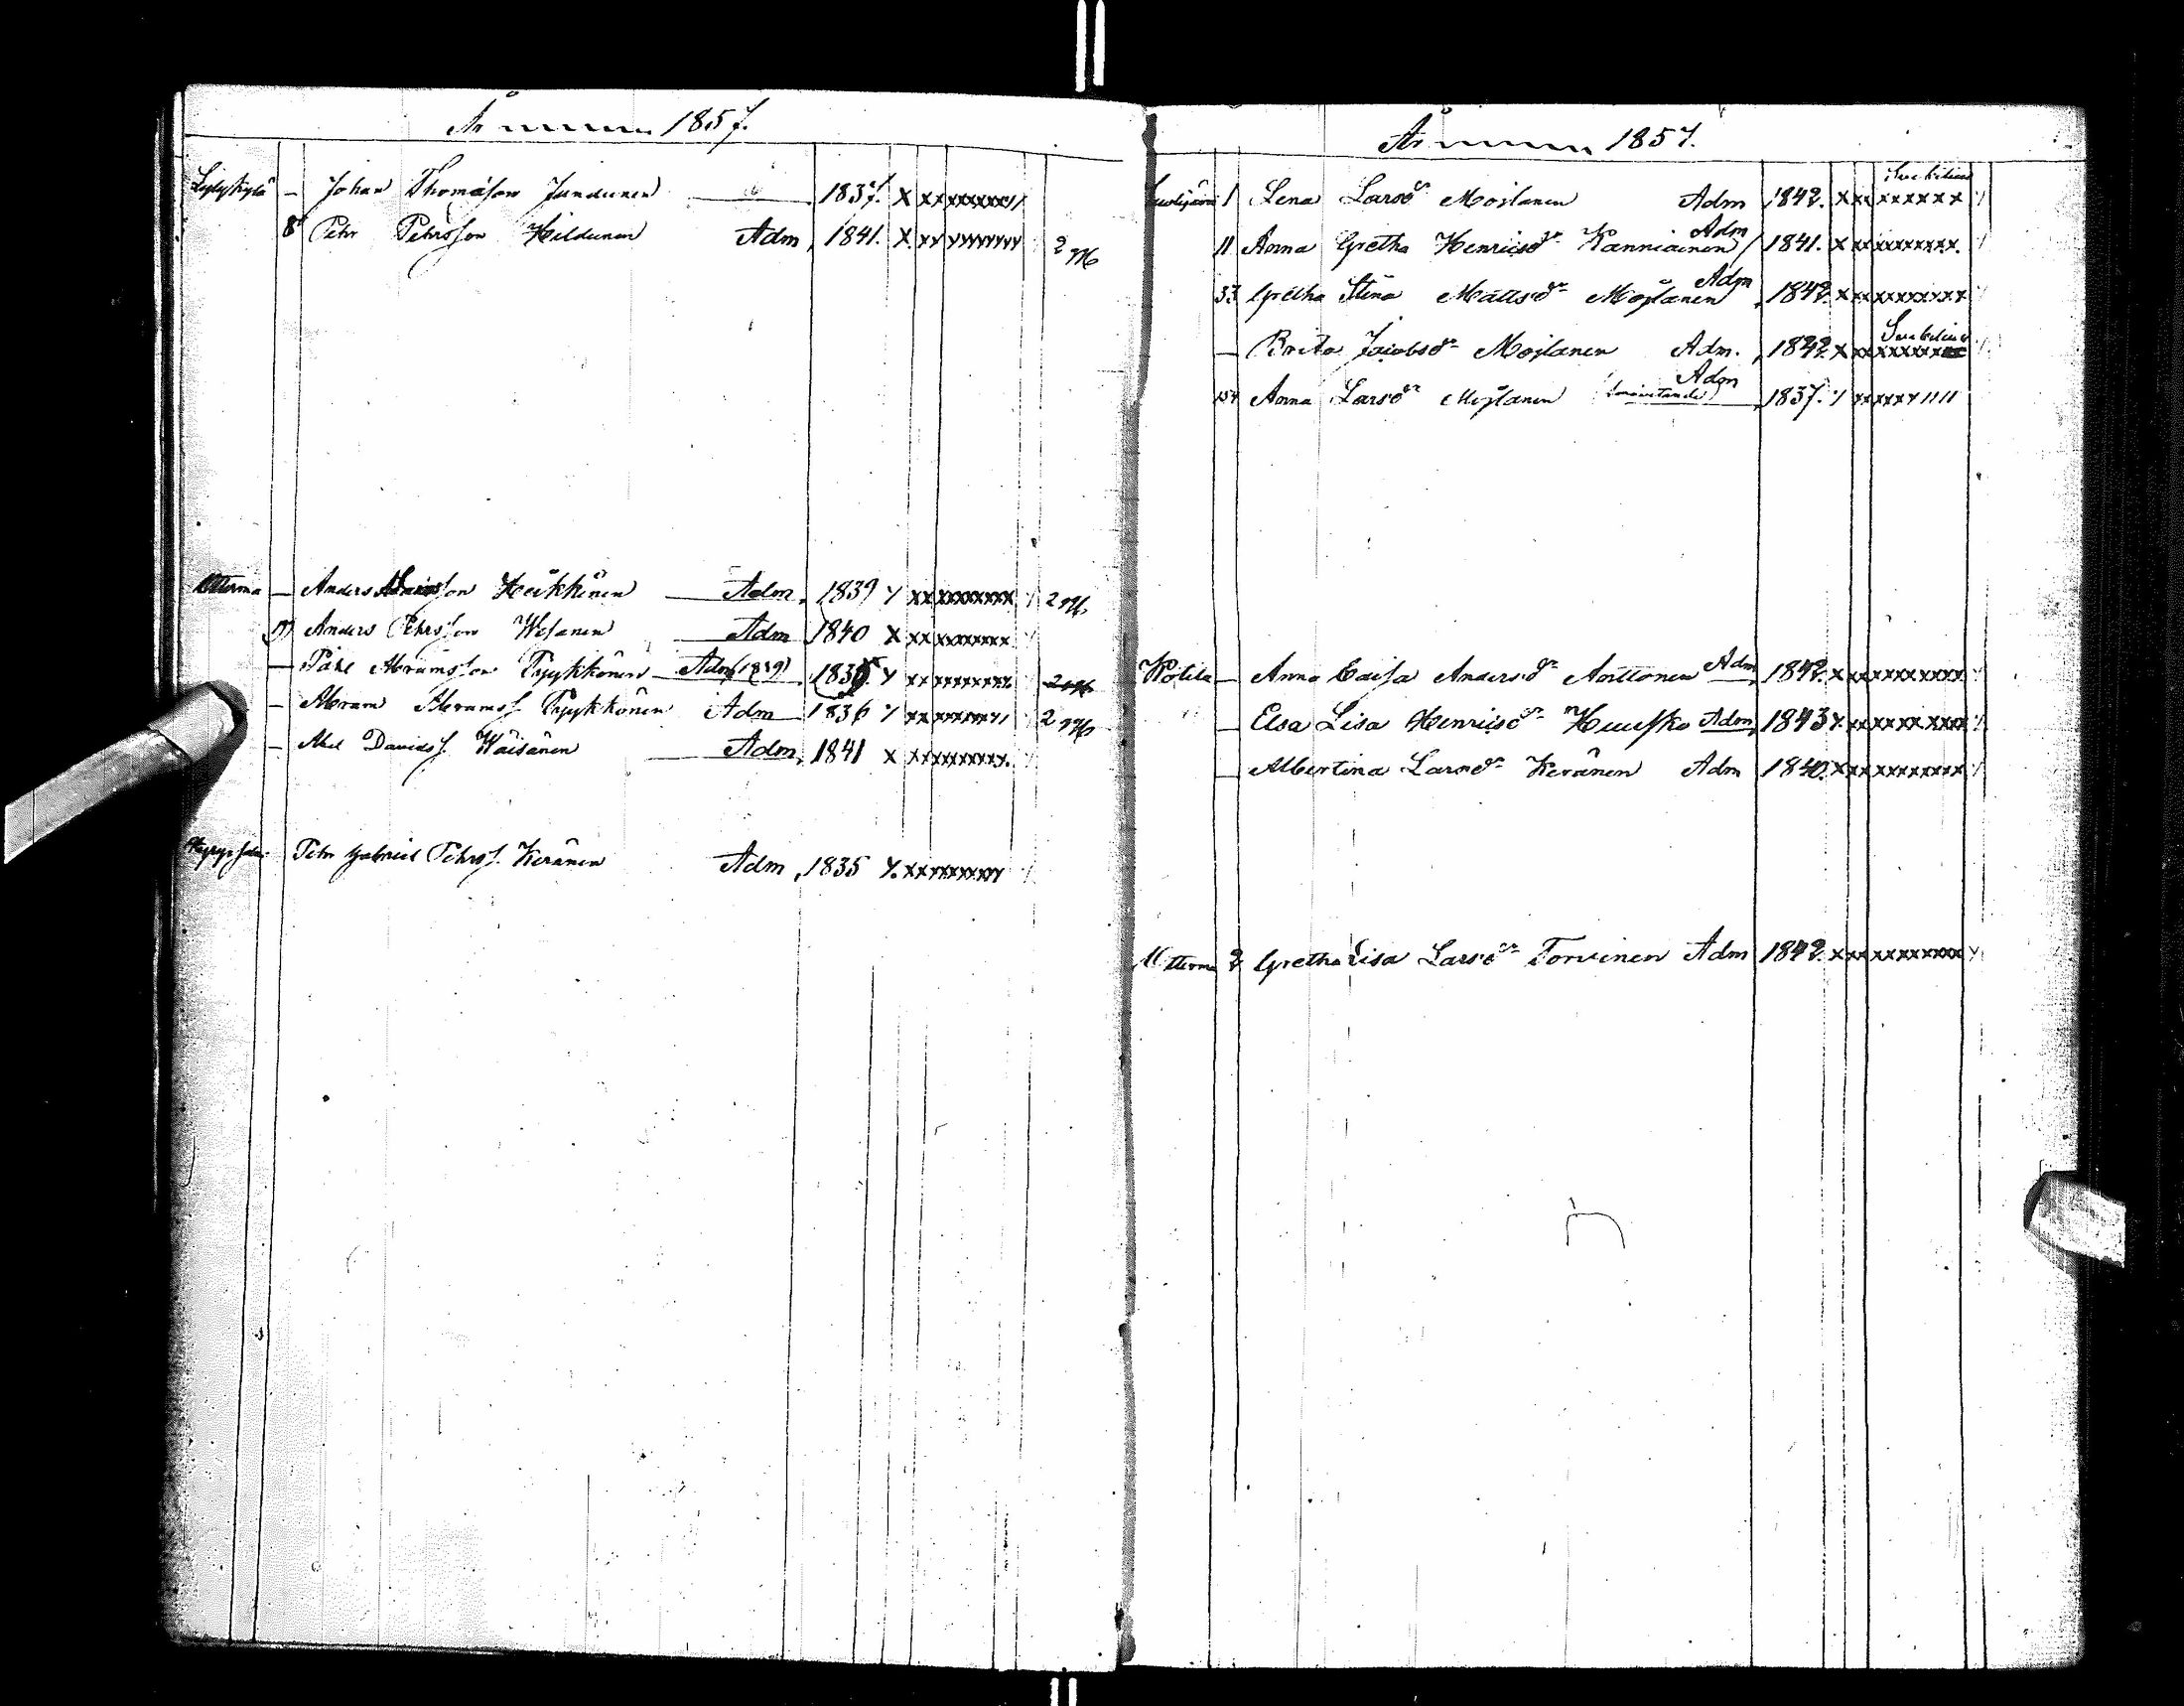 År 1857.
Johan Thomasson Junnunen 1837. X xx xxxxxxxx
8 Pehr Pehrsson Hildunen Adm 1841. X xx xxxxxxxxx 2 M
Utterma — Anders son Heikkinen Adm. 1839 x xx xxxxxxxxx 2 M
Anders Pehrsson Wesanen Adm 1840 X xx xxxxxxxxx
— Påhl Abramsson Pyykkönen Adm (1839) x xx xxxxxxxxx
— Abram Abramss. Pyykkönen Adm 1836 x xx xxxxxxxx 2 M
— Abel Davidss. Wäisänen Adm. 1841 x xx xxxxxxxx
Pehr Gabriel Pehrss. Keränen Adm, 1835 x xx xxxxxxxx
År 1857.
1 Lena Larsdr Moilanen Adm 1842. x xx xxxxxxx
11 Anna Gretha Henricsdr Kanniainen Adm 1841. x xx xxxxxxxxx
33 Gretha Stina Mattsdr Moilanen Adm 1842. x xx xxxxxxxxx
— Brita Jacobsdr Moilanen Adm. 1842 x xx xxxxxxx
Anna Larsdr Moilanen Adm 1837. xxxxxx
Kotila — Anna Caisa Andersdr Anttonen Adm 1842. x xx xxxxxxxxx
— Elsa Lisa Henricsdr Huusko Adm 1843 x xx xxxxxxxxx
— Albertina Larsdr Keränen Adm 1840. x xx xxxxxxxxx
Utterma 2 Gretha Lisa Larsdr Torvinen Adm 1842 x xx xxxxxxxxx